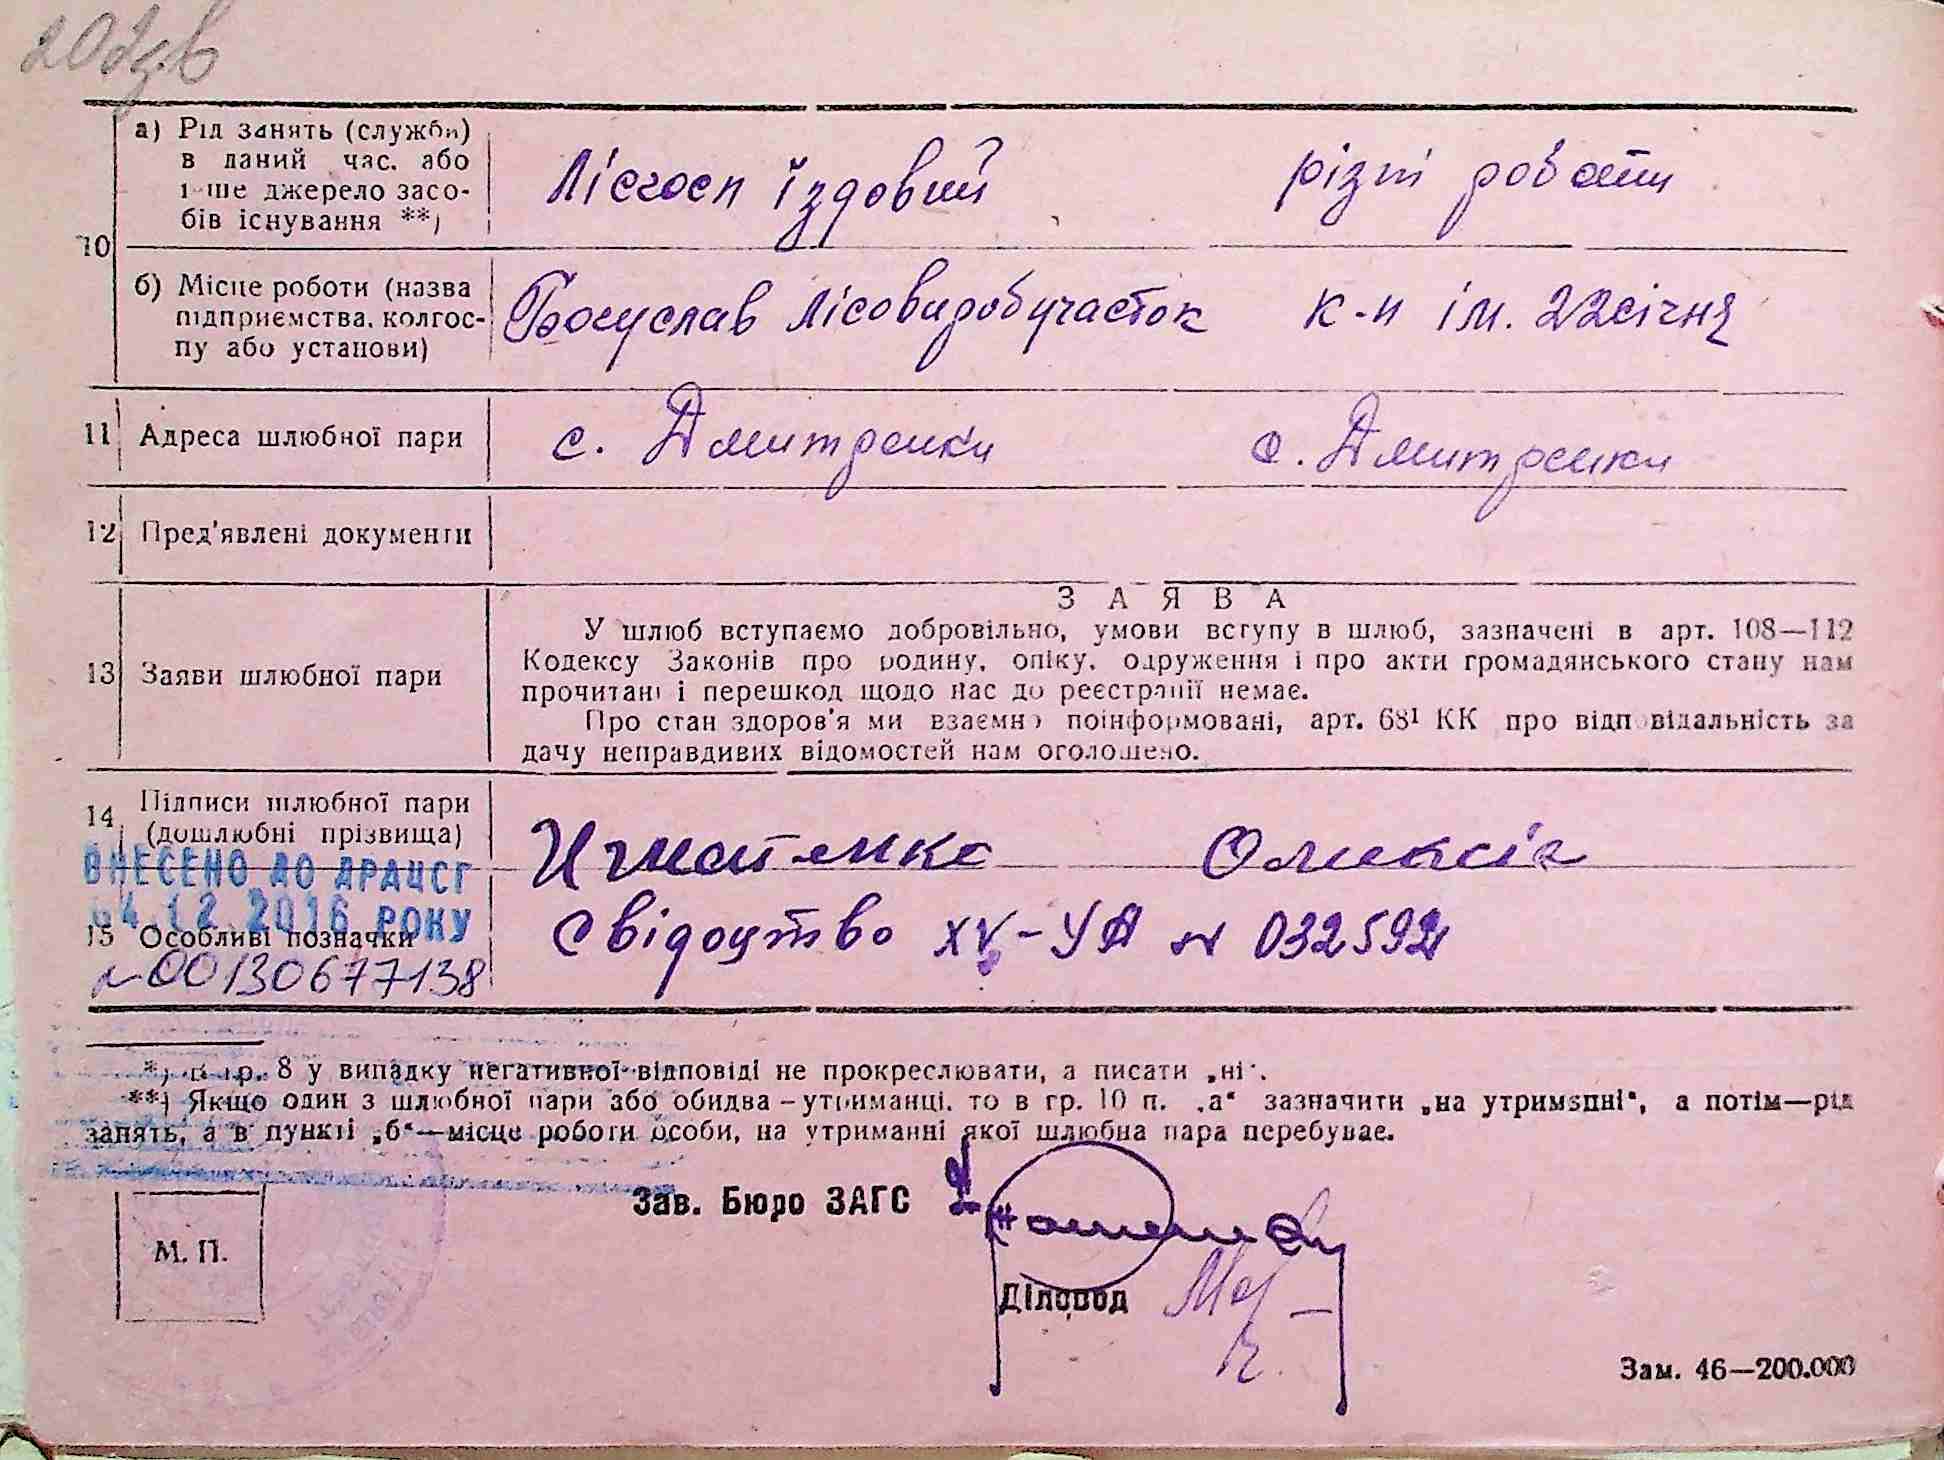 а) Рід занять (служби)
в даний час. або
інше джерело засо-
бів існування **)
Лісгосп їздовий
різні роботи
10
б) Місце роботи (назва
підприємства, колгос-
пу або установи)
Богуслав лісовидобучасток
к-п ім. 22 січня
11 Адреса шлюбної пари
с. Дмитренки
с. Дмитренки
12 Пред'явлені документи
13 Заяви шлюбної пари
ЗАЯВА
У шлюб вступаємо добровільно, умови вступу в шлюб, зазначені в арт. 108—112
Кодексу Законів про родину, опіку, одруження і про акти громадянського стану нам
прочитані і перешкод щодо нас до реєстрації немає.
Про стан здоров'я ми взаємно поінформовані, арт. 68¹ КК про відповідальність за
дачу неправдивих відомостей нам оголошено.
14 Підписи шлюбної пари
(дошлюбні прізвища)
Игнатенко
ВНЕСЕНО ДО ДРАЦСГ
04.12.2016 РОКУ
15 Особливі позначки
свідоцтво XV-УА № 032592
№00130677138
*) В гр. 8 у випадку негативної відповіді не прокреслювати, а писати „ні".
**) Якщо один з шлюбної пари або обидва – утриманці, то в гр. 10 п. „а" зазначити „на утриманні", а потім—рід
занять, а в пункті „б"—місце роботи особи, на утриманні якої шлюбна пара перебуває.
Зав. Бюро ЗАГС
М. П.
Діловод
Зам. 46—200.000